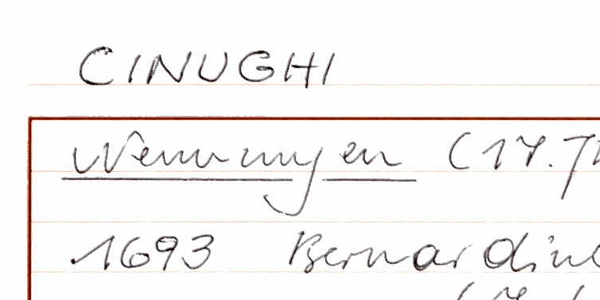 CINUGHI
Nennungen (17. Jh
1693 Bernardin